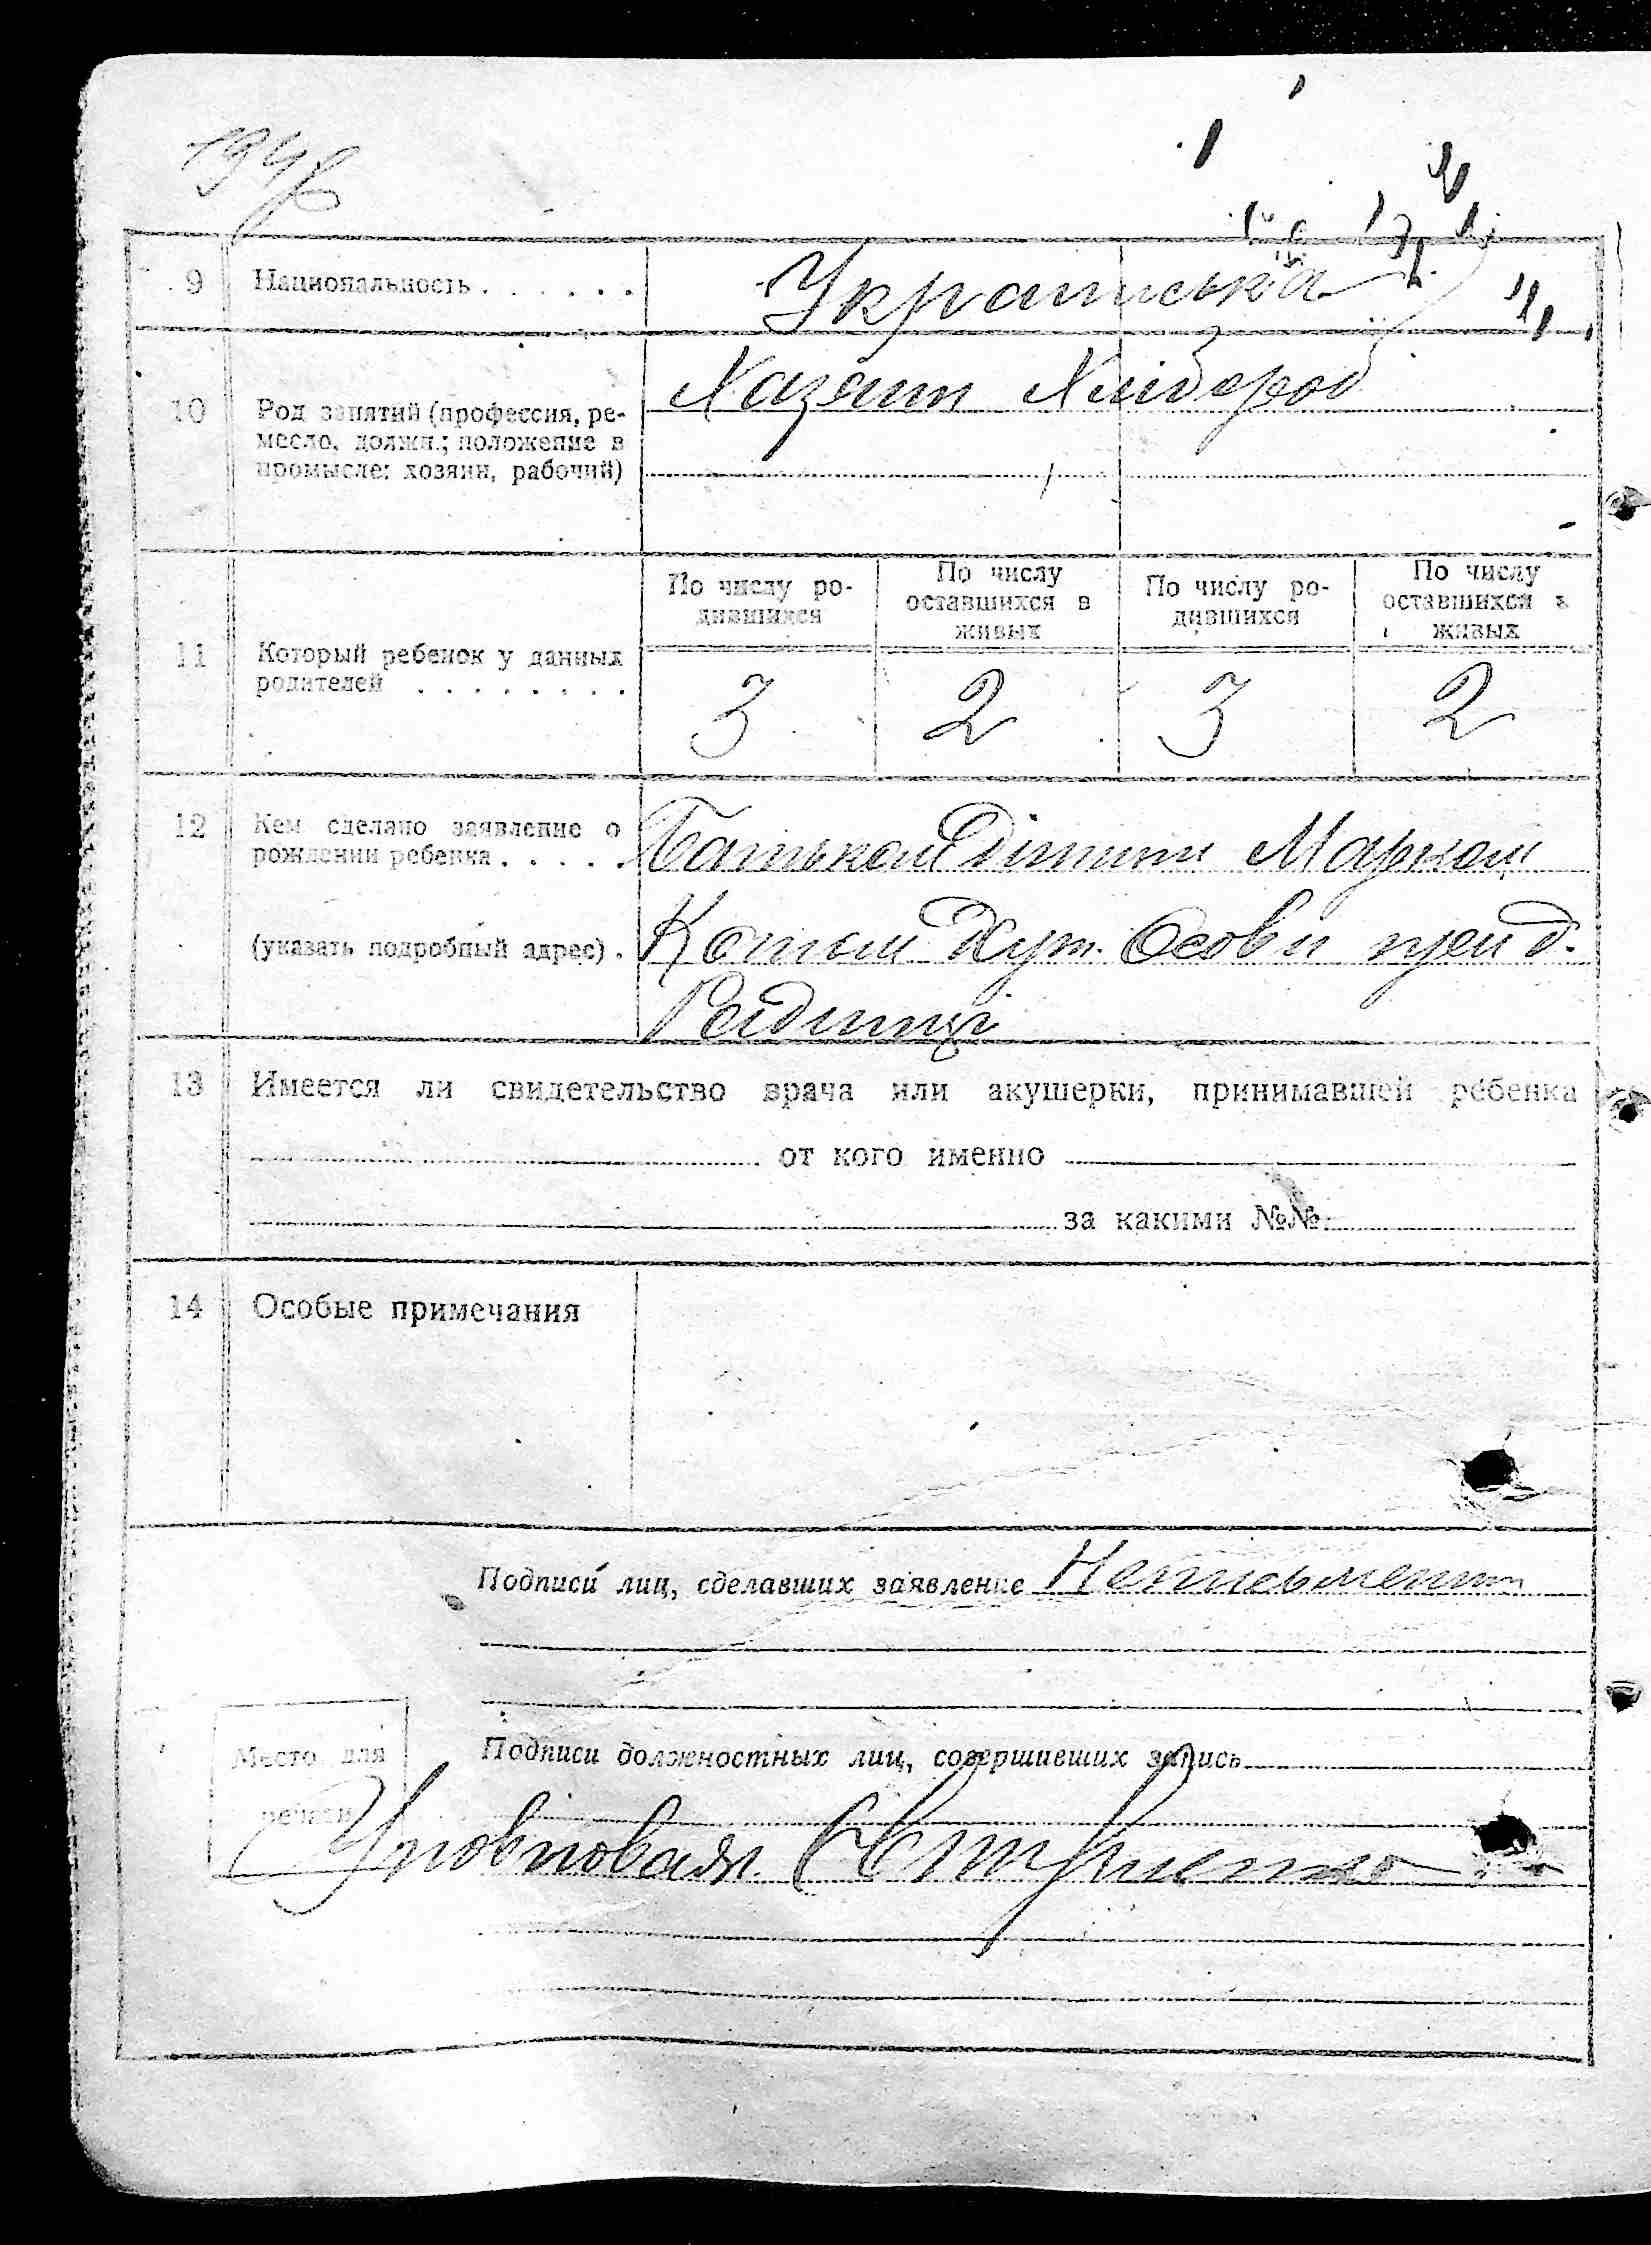 9 Национальность . . . . . . Українська
10 Род занятий (профессия, ре- Хазяин Хлібороб
месло, должн.; положение в
промысле: хозяин, рабочий)
По числу ро- По числу По числу ро- По числу
дившихся оставшихся в дившихся оставшихся в
живых живых
11 Который ребенок у данных
родителей . . . . . . . . 3 2 3 2
12 Кем сделано заявление о
рождении ребенка . . . . . Батьком Дитини Марком
(указать подробный адрес) . Хут.
13 Имеется ли свидетельство врача или акушерки, принимавшей ребенка
от кого именно
за какими №№
14 Особые примечания
Подписи лиц, сделавших заявление Неписьменни
Место для Подписи должностных лиц, совершивших запись
печати